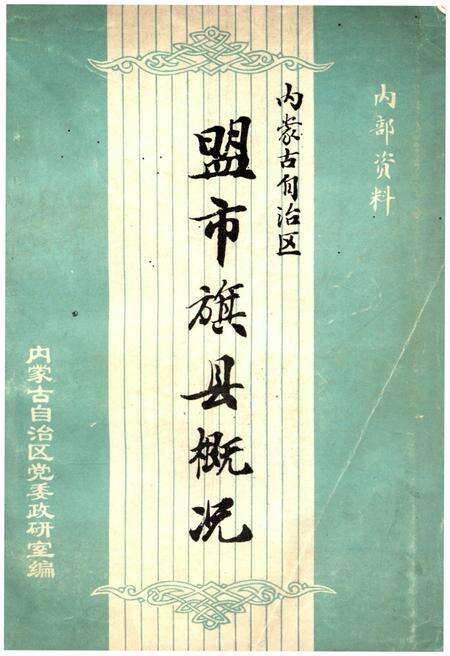 内部资料
内蒙古自治区
盟市旗县概况
内蒙古自治区党委政研室编